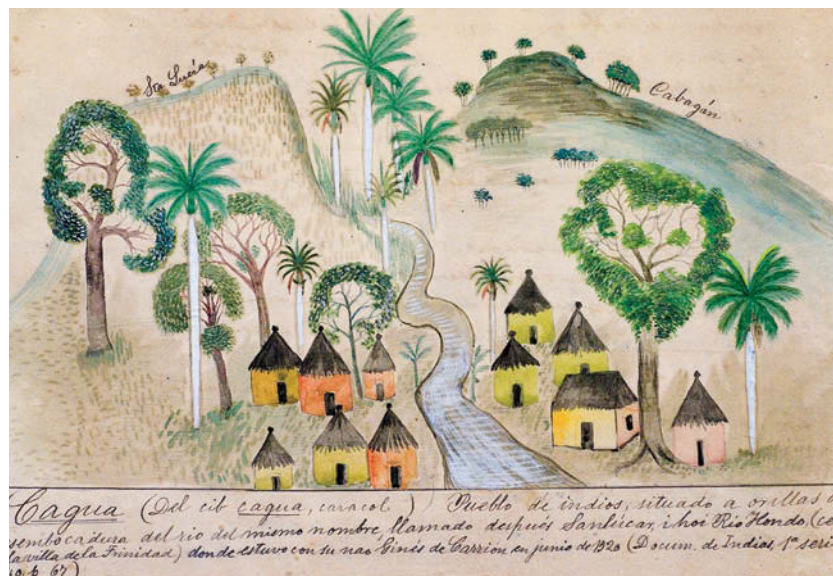 Sta Lucía
Cabagán
Cagua (Del cib cagua, caracol) Pueblo de indios, situado a orillas
sembocadura del rio del mismo nombre llamado después Sanlúcar, i hoi Rio Hondo, (ce
la villa de la Trinidad) donde estuvo con su nao Ginés de Carrion en junio de 1520 (Docum. de Indias, 1ª seri
p. 67)